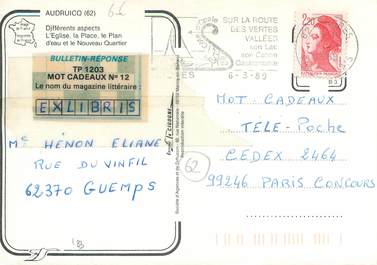 AUDRUICQ (62)
Différents aspects
L'Eglise, la Place, le Plan
d'eau et le Nouveau Quartier
BULLETIN-RÉPONSE
TP 1203
MOT CADEAUX N° 12
Le nom du magazine littéraire :
EXLIBRIS
Me HÉNON ELIANE
RUE DU VINFIL
62370 GUEMPS
SUR LA ROUTE
DES VERTES
VALLÉES
son Lac
son Casino
Gastronomie
6-3-89
2,20
MOT CADEAUX
TÉLÉ-Poche
CEDEX 2464
99246 PARIS CONCOURS
62